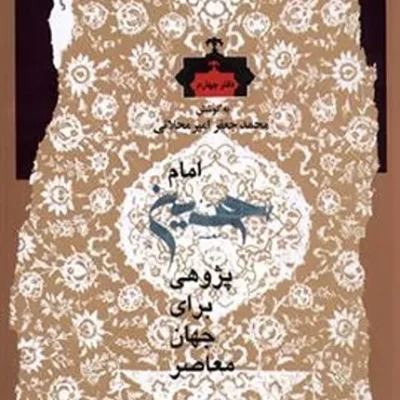 دفتر چهارم
به کوشش
محمدجعفر امیرمحلاتی
امام
حسین
پژوهی
برای
جهان
معاصر